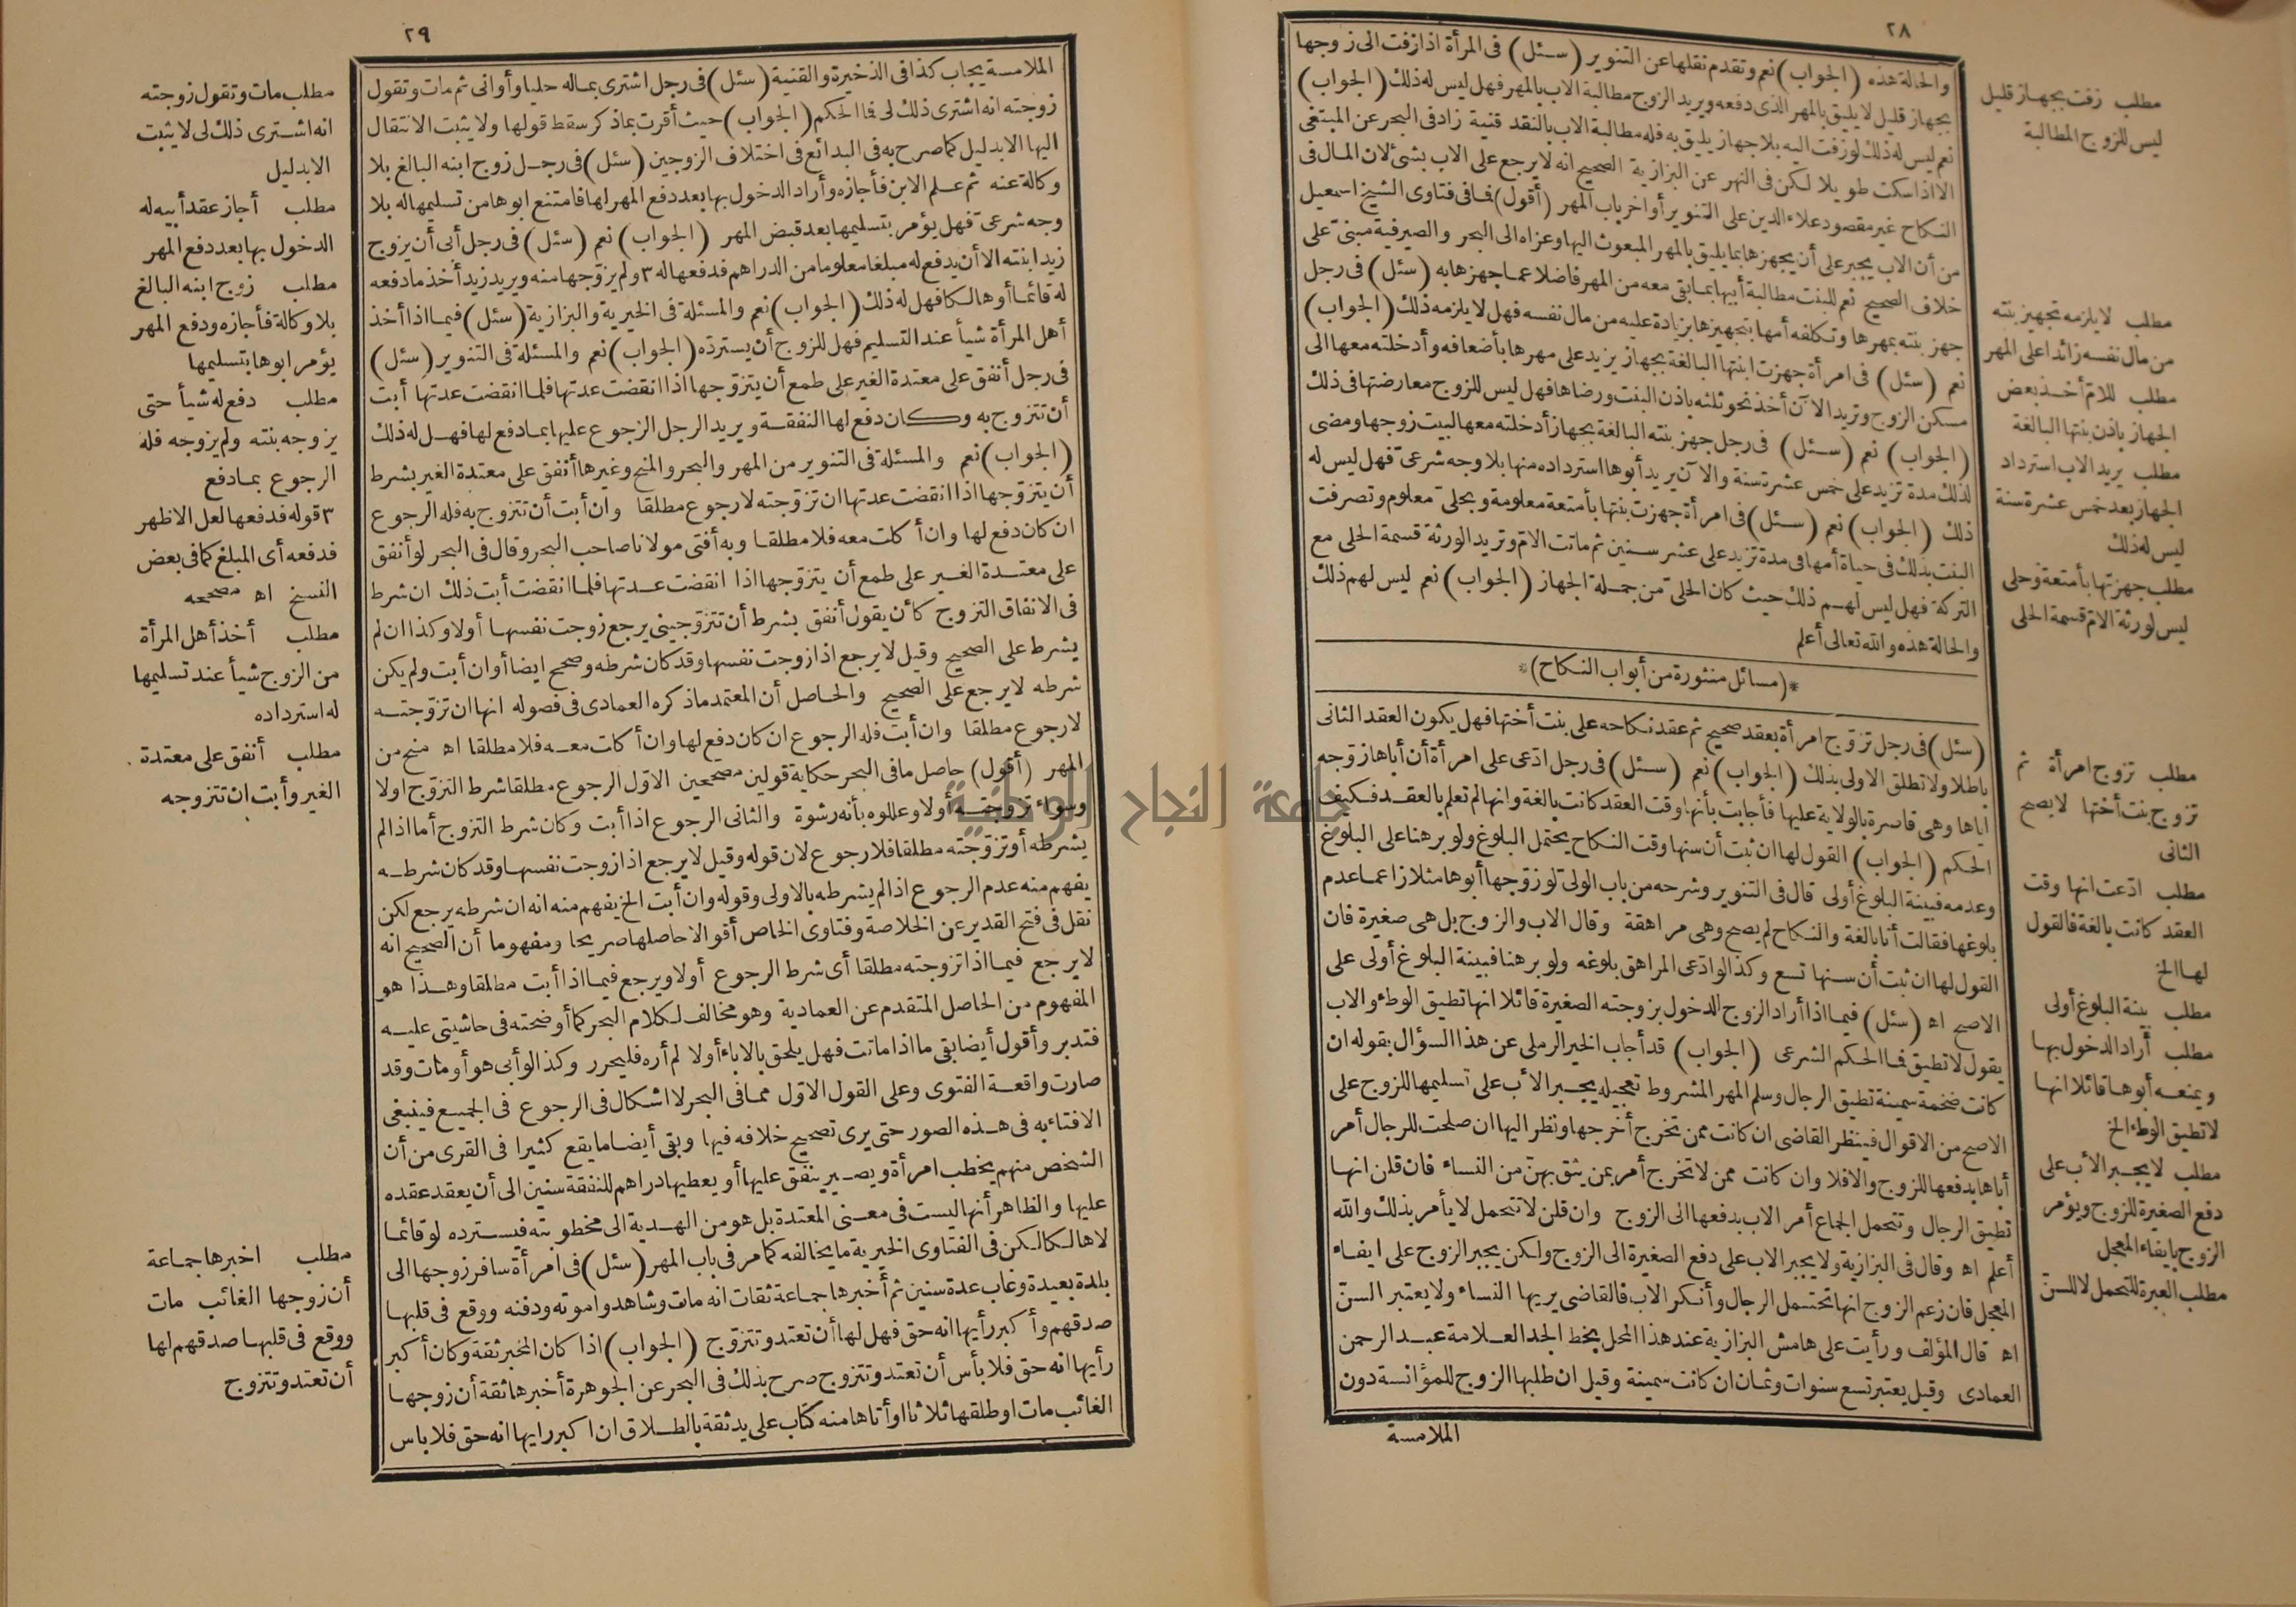 ٢٨
والحالة هذه (الجواب) نعم وتقدم نقلها عن التنوير (سئل) فى المرأة اذا زفت الى زوجها
بجهاز قليل لا يليق بالمهر الذى دفعه ويريد الزوج مطالبة الاب بالمهر فهل ليس له ذلك (الجواب)
نعم ليس له ذلك لو زفت اليه بلا جهاز يليق به فله مطالبة الاب بالنقد قنية زاد فى البحر عن المبتغى
الا اذا سكت طويلا لكن فى النهر عن البزازية الصحيح انه لا يرجع على الاب بشئ لان المال فى
النكاح غير مقصود علاء الدين على التنوير أواخر باب المهر (أقول) فما فى فتاوى الشيخ اسمعيل
من أن الاب يجبر على أن يجهزها بما يليق بالمهر المبعوث اليها وعزاه الى البحر والصيرفية مبنىّ على
خلاف الصحيح نعم للبنت مطالبة أبيها بما بقى معه من المهر فاضلا عما جهزها به (سئل) فى رجل
جهز بنته بمهرها وتكلفه أمها بتجهيزها بزيادة عليه من مال نفسه فهل لا يلزمه ذلك (الجواب)
نعم (سئل) فى امرأة جهزت ابنتها البالغة بجهاز يزيد على مهرها بأضعافه وأدخلته معها الى
مسكن الزوج وتريد الآن أخذ نحو ثلثه باذن البنت ورضاها فهل ليس للزوج معارضتها فى ذلك
(الجواب) نعم (سئل) فى رجل جهز بنته البالغة بجهاز أدخلته معها لبيت زوجها ومضى
لذلك مدة تزيد على خمس عشرة سنة والآن يريد أبوها استرداده منها بلا وجه شرعىّ فهل ليس له
ذلك (الجواب) نعم (سئل) فى امرأة جهزت بنتها بأمتعة معلومة وبحلىّ معلوم وتصرفت
البنت بذلك فى حياة أمها فى مدة تزيد على عشر سنين ثم ماتت الامّ وتريد الورثة قسمة الحلى مع
التركة فهل ليس لهم ذلك حيث كان الحلىّ من جملة الجهاز (الجواب) نعم ليس لهم ذلك
والحالة هذه والله تعالى أعلم
*(مسائل منثورة من أبواب النكاح)*
(سئل) فى رجل تزوّج امرأة بعقد صحيح ثم عقد نكاحه على بنت أختها فهل يكون العقد الثانى
باطلا ولا تطلق الاولى بذلك (الجواب) نعم (سئل) فى رجل ادّعى على امرأة أن أباها زوّجه
اياها وهى قاصرة بالولاية عليها فأجابت بأنها وقت العقد كانت بالغة وانها لم تعلم بالعقد فكيف
الحكم (الجواب) القول لها ان ثبت أن سنها وقت النكاح يحتمل البلوغ ولو برهنا على البلوغ
وعدمه فبينة البلوغ أولى قال فى التنوير وشرحه من باب الولىّ لو زوّجها أبوها مثلا زاعما عدم
بلوغها فقالت أنا بالغة والنكاح لم يصح وهى مراهقة وقال الاب والزوج بل هى صغيرة فان
القول لها ان ثبت أن سنها تسع وكذا لو ادّعى المراهق بلوغه ولو برهنا فبينة البلوغ أولى على
الاصح اه (سئل) فيما اذا أراد الزوج الدخول بزوجته الصغيرة قائلا انها تطيق الوطء والاب
يقول لا تطيق فما الحكم الشرعى (الجواب) قد أجاب الخير الرملى عن هذا السؤال بقوله ان
كانت ضخمة سمينة تطيق الرجال وسلم المهر المشروط تعجيله يجبر الأب على تسليمها للزوج على
الاصح من الاقوال فينظر القاضى ان كانت ممن تخرج أخرجها ونظر اليها ان صلحت للرجال أمر
أباها بدفعها للزوج والا فلا وان كانت ممن لا تخرج أمر بمن يثق بهنّ من النساء فان قلن انها
تطيق الرجال وتتحمل الجماع أمر الاب بدفعها الى الزوج وان قلن لا تتحمل لا يأمر بذلك والله
أعلم اه وقال فى البزازية ولا يجبر الاب على دفع الصغيرة الى الزوج ولكن يجبر الزوج على ايفاء
المعجل فان زعم الزوج انها تحتمل الرجال وأنكر الاب فالقاضى يريها النساء ولا يعتبر السنّ
اه قال المؤلف ورأيت على هامش البزازية عند هذا المحل بخط الجد العلامة عبد الرحمن
العمادى وقيل يعتبر تسع سنوات وثمان ان كانت سمينة وقيل ان طلبها الزوج للمؤانسة دون
الملامسة
مطلب زفت بجهاز قليل
ليس للزوج المطالبة
مطلب لا يلزمه تجهيز بنته
من مال نفسه زائدا على المهر
مطلب للامّ أخذ بعض
الجهاز باذن بنتها البالغة
مطلب يريد الاب استرداد
الجهاز بعد خمس عشرة سنة
ليس له ذلك
مطلب جهزتها بأمتعة وحلى
ليس لورثة الامّ قسمة الحلى
مطلب تزوج امرأة ثم
تزوج بنت أختها لا يصح
الثانى
مطلب ادّعت انها وقت
العقد كانت بالغة فالقول
لها الخ
مطلب بينة البلوغ أولى
مطلب أراد الدخول بها
ويمنعه أبوها قائلا انها
لا تطيق الوطء الخ
مطلب لا يجبر الأب على
دفع الصغيرة للزوج ويؤمر
الزوج بايفاء المعجل
مطلب العبرة للتحمل لا للسنّ
٢٩
الملامسة يجاب كذا فى الذخيرة والقنية (سئل) فى رجل اشترى بماله حليا وأوانى ثم مات وتقول
زوجته انه اشترى ذلك لى فما الحكم (الجواب) حيث أقرت بما ذكر سقط قولها ولا يثبت الانتقال
اليها الا بدليل كما صرح به فى البدائع فى اختلاف الزوجين (سئل) فى رجل زوج ابنه البالغ بلا
وكالة عنه ثم علم الابن فأجازه وأراد الدخول بها بعد دفع المهر لها فامتنع ابوها من تسليمها له بلا
وجه شرعىّ فهل يؤمر بتسليمها بعد قبض المهر (الجواب) نعم (سئل) فى رجل أبى أن يزوج
زيدا بنته الا أن يدفع له مبلغا معلوما من الدراهم فدفعها له ٣ ولم يزوّجها منه ويريد زيد أخذ ما دفعه
له قائما أو هالكا فهل له ذلك (الجواب) نعم والمسئلة فى الخيرية والبزازية (سئل) فيما اذا أخذ
أهل المرأة شيأ عند التسليم فهل للزوج أن يستردّه (الجواب) نعم والمسئلة فى التنوير (سئل)
فى رجل أنفق على معتدة الغير على طمع أن يتزوّجها اذا انقضت عدتها فلما انقضت عدتها أبت
أن تتزوج به وكان دفع لها النفقة ويريد الرجل الرجوع عليها بما دفع لها فهل له ذلك
(الجواب) نعم والمسئلة فى التنوير من المهر والبحر والمنح وغيرها أنفق على معتدة الغير بشرط
أن يتزوّجها اذا انقضت عدتها ان تزوّجته لا رجوع مطلقا وان أبت أن تتزوج به فله الرجوع
ان كان دفع لها وان أكلت معه فلا مطلقا وبه أفتى مولانا صاحب البحر وقال فى البحر لو أنفق
على معتدة الغير على طمع أن يتزوّجها اذا انقضت عدتها فلما انقضت أبت ذلك ان شرط
فى الانفاق التزوج كأن يقول أنفق بشرط أن تتزوّجينى يرجع زوجت نفسها أولا وكذا ان لم
يشرط على الصحيح وقيل لا يرجع اذا زوجت نفسها وقد كان شرطه وصحح ايضا أو ان أبت ولم يكن
شرطه لا يرجع على الصحيح والحاصل أن المعتمد ما ذكره العمادى فى فصوله انها ان تزوّجته
لا رجوع مطلقا وان أبت فله الرجوع ان كان دفع لها وان أكلت معه فلا مطلقا اه منح من
المهر (أقول) حاصل ما فى البحر حكاية قولين مصححين الاوّل الرجوع مطلقا شرط التزوّج اولا
وسواء تزوجته أولا وعللوه بأنه رشوة والثانى الرجوع اذا أبت وكان شرط التزوج أما اذا لم
يشرطه أو تزوّجته مطلقا فلا رجوع لان قوله وقيل لا يرجع اذا زوجت نفسها وقد كان شرطه
يفهم منه عدم الرجوع اذا لم يشرطه بالاولى وقوله وان أبت الخ يفهم منه انه ان شرطه يرجع لكن
نقل فى فتح القدير عن الخلاصة وفتاوى الخاص أقوالا حاصلها صريحا ومفهوما أن الصحيح انه
لا يرجع فيما اذا تزوجته مطلقا أى شرط الرجوع أولا ويرجع فيما اذا أبت مطلقا وهذا هو
المفهوم من الحاصل المتقدم عن العمادية وهو مخالف لكلام البحر كما أوضحته فى حاشيتى عليه
فتدبر وأقول أيضا بقى ما اذا ماتت فهل يلحق بالاباء أولا لم أره فليحرر وكذا لو أبى هو أو مات وقد
صارت واقعة الفتوى وعلى القول الاوّل مما فى البحر لا اشكال فى الرجوع فى الجميع فينبغى
الافتاء به فى هذه الصور حتى يرى تصحيح خلافه فيها وبقى أيضا ما يقع كثيرا فى القرى من أن
الشخص منهم يخطب امرأة ويصير ينفق عليها أو يعطيها دراهم للنفقة سنين الى أن يعقد عقده
عليها والظاهر أنها ليست فى معنى المعتدة بل هو من الهدية الى مخطوبته فيسترده لو قائما
لا هالكا لكن فى الفتاوى الخيرية ما يخالفه كما مر فى باب المهر (سئل) فى امرأة سافر زوجها الى
بلدة بعيدة وغاب عدة سنين ثم أخبرها جماعة ثقات انه مات وشاهدوا موته ودفنه ووقع فى قلبها
صدقهم وأكبر رأيها انه حق فهل لها أن تعتد وتتزوّج (الجواب) اذا كان المخبر ثقة وكان أكبر
رأيها انه حق فلا بأس أن تعتد وتتزوج صرح بذلك فى البحر عن الجوهرة أخبرها ثقة أن زوجها
الغائب مات او طلقها ثلاثا او أتاها منه كتاب على يد ثقة بالطلاق ان اكبر رايها انه حق فلا باس
مطلب مات وتقول زوجته
انه اشترى ذلك لى لا يثبت
الا بدليل
مطلب أجاز عقد أبيه له
الدخول بها بعد دفع المهر
مطلب زوج ابنه البالغ
بلا وكالة فأجازه ودفع المهر
يؤمر ابوها بتسليمها
مطلب دفع له شيأ حتى
يزوجه بنته ولم يزوجه فله
الرجوع بما دفع
٣ قوله فدفعها لعل الاظهر
فدفعه أى المبلغ كما فى بعض
النسخ اه مصححه
مطلب أخذ أهل المرأة
من الزوج شيأ عند تسليمها
له استرداده
مطلب أنفق على معتدة
الغير وأبت ان تتزوجه
مطلب اخبرها جماعة
أن زوجها الغائب مات
ووقع فى قلبها صدقهم لها
أن تعتد وتتزوج
جامعة النجاح الوطنية